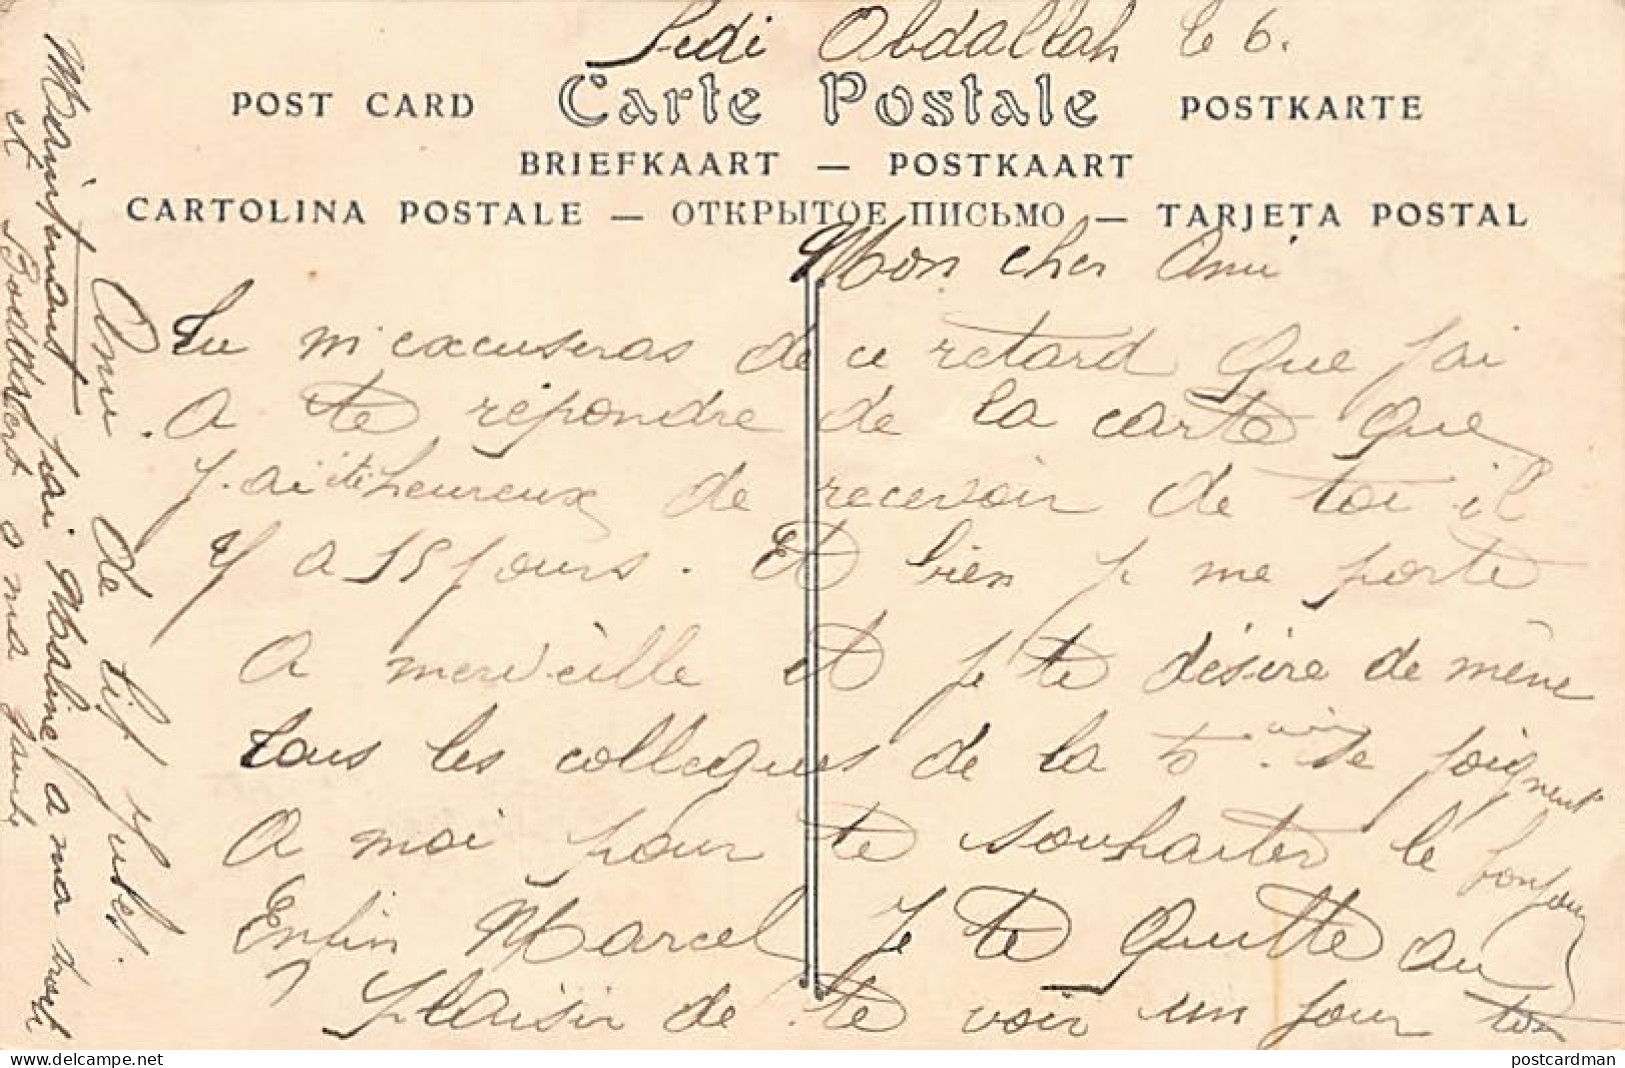 Sidi Abdallah le 6.
POST CARD Carte Postale POSTKARTE
BRIEFKAART — POSTKAART
CARTOLINA POSTALE — ОТКРЫТОЕ ПИСЬМО — TARJETA POSTAL
Mon cher Ami
Tu m'excuseras de ce retard que j'ai
a te répondre de la carte que
j'ai été heureux de recevoir de toi il
y a 15 jours. Et bien je me porte
a merveille et je te désire de mêne
tous les collegues de la 5. se joignent
a moi pour te souhaiter le bonjour
Enfin Marcel je te quitte au
plaisir de te voir un jour ton
Ami de tif
Maintenant j'ai a ma
et a ma gauche
postcardman